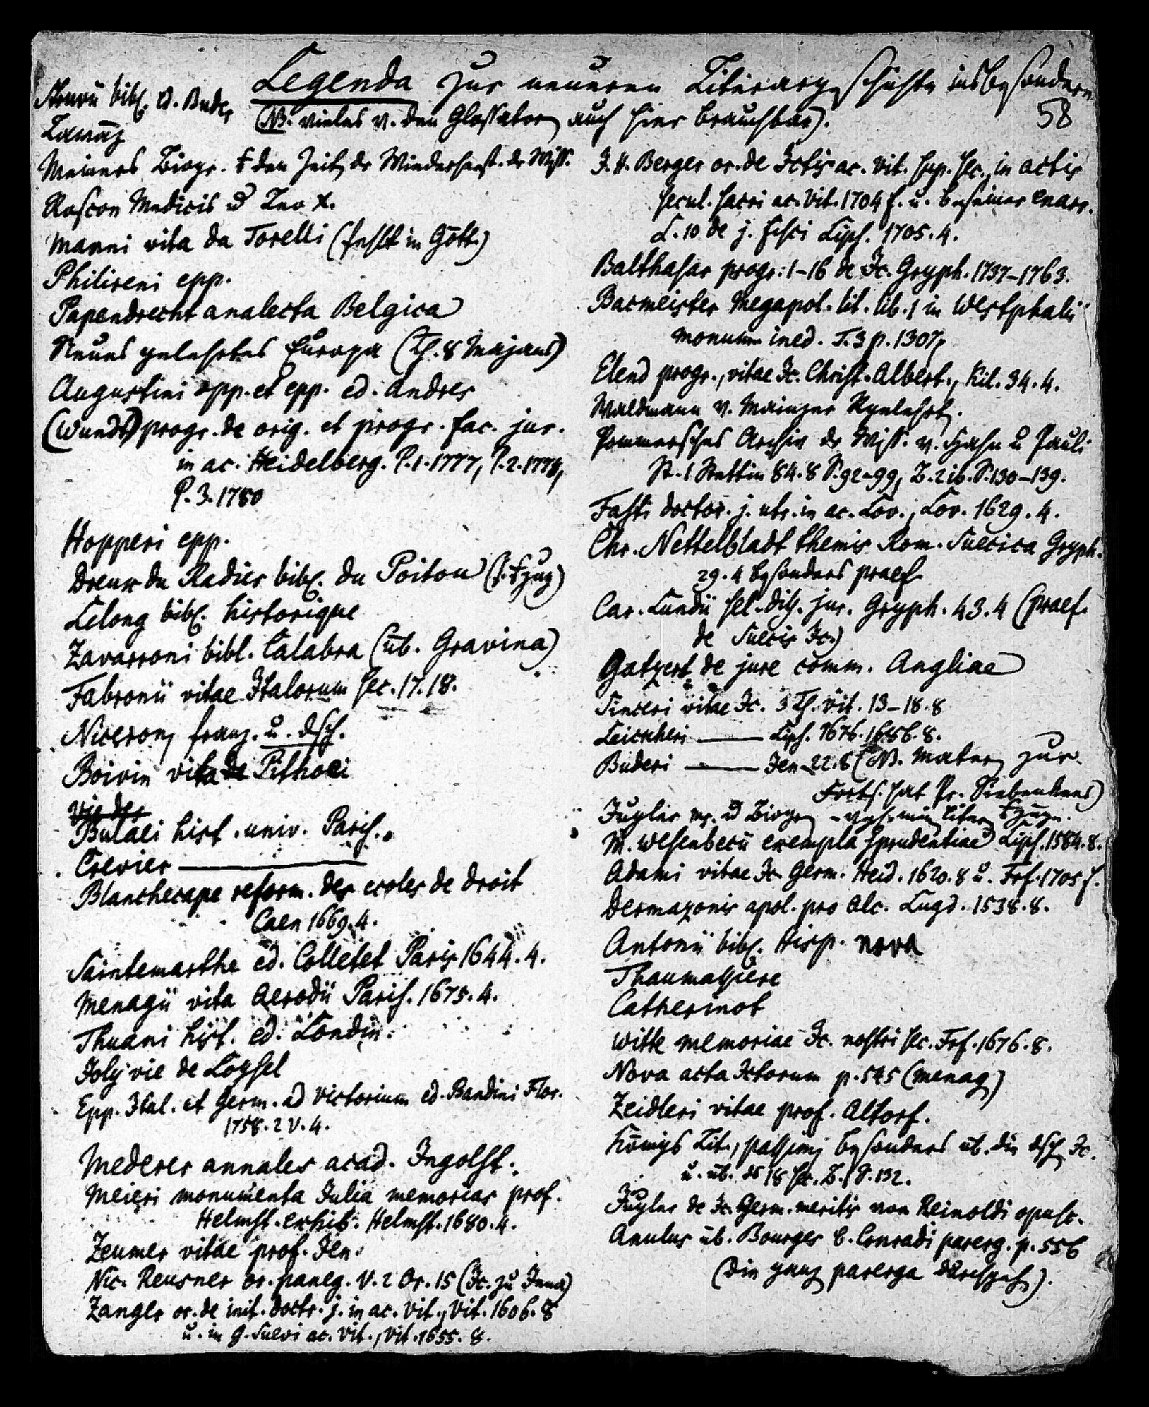 Legenda zur neueren Literargeschichte insbesondere
58
(NB. vieles v. den Glossatoren auch hier brauchbar).
Struvii bibl. ed. Buder
Meiners Biogr. a. den Zeiten der Wiederherst. der Wiss.
Roscoe Medicis u Leo X.
Manni vita da Torelli (fehlt in Gött.)
Philireni epp.
Papendrecht analecta Belgica
Neues gelehrtes Europa (Th. 8 Majans)
Augustini opp. et epp. ed. Andres
(Wundt) progr. de orig. et progr. fac. jur.
in ac. Heidelberg. P. 1. 1777, P. 2. 1779,
P. 3. 1780
Hopperi epp.
Dreux du Radier bibl. du Poitou
Lelong bibl. historique
Zavarroni bibl. Calabra (üb. Gravina)
Fabronii vitae Italorum sec. 17. 18.
Niceron, franz. u. dtsch.
Boivin vita de Pithoei
Bulaei hist. univ. Paris.
Crevier ———
Blanchecape reform. des ecoles de droit
Caen 1669. 4.
Saintemarthe ed. Colletet Paris 1644. 4.
Menagii vita Aerodii Paris. 1675. 4.
Thuani hist. ed. Londin.
Joly vie de Loysel
Epp. Ital. et Germ. ad Victorium ed. Bandini Flor.
1758. 2 V. 4.
Mederer annales acad. Ingolst.
Meieri monumenta Julia memorias prof.
Helmst. exhib. Helmst. 1680. 4.
Zeumer vitae prof. Jen.
Nic. Reusner or. paneg. V. 2 Or. 15 (Ic. zu Jena)
Zanger or. de init. doctr. j. in ac. Vit., Vit. 1606. 8
u. in G. Suevi ac. Vit., Vit. 1655. 8.
I. H. Berger or. de Ictis ac. Vit. sup. sec., in actis
secul. sacri ac. Vit. 1704 f. u. bei seiner enarr.
L. 10 de j. fisci Lips. 1705. 4.
Balthasar progr. 1-16 de Ic. Gryph. 1737-1763.
Bacmeister Megapol. lit. lib. 1 in Westphalii
monum. ined. T. 3 p. 1307,
Elend progr., vitae Ic. Christ. Albert., Kil. 34. 4.
Waldmann v. Mainzer Rgelehrt.
Pommersches Archiv der Wiss. v. Hahn u Pauli
St. 1 Stettin 84. 8 S. 92-99, B. 2 ib. S. 130-139.
Fasti doctor. j. utr. in ac. Lov., Lov. 1629. 4.
Chr. Nettelbladt themis Rom. Suecica Gryph.
29. 4 besonders praef.
Car. Lundii sel. diss. jur. Gryph. 43. 4 (praef.
de Suecis Ic.)
Gatzert de jure comm. Angliae
Sinceri vitae Ic. 3 Th. vit. 13-18. 8
Leickheri ——— Lips. 1676. 1686. 8.
Buderi ——— Jen. 22. 8 (NB. Mater. zur
Forts. hat Pr. Siebenkees)
M. Wesenbecii exempla jprudentiae Lips. 1584. 8.
Adami vitae Ic. Germ. Heid. 1620. 8 u. Frf. 1705 f.
Dermazonis apol. pro Alc. Lugd. 1538. 8.
Antonii bibl. Hisp. nova
Thaumassiere
Catherinot
Witte memoriae Ic. nostri sec. Frf. 1676. 8.
Nova acta Ictorum p. 545 (Menag.)
Zeidleri vitae prof. Altorf.
Königs Lit., passim, besonders üb. die dtsch. Ic.
u. üb. das 18 sec. B. 1 S. 132.
Jugler de Ic. Germ. meritis von Reinoldi opusc.
Anulus üb. Bourges b. Conradi parerg. p. 556
(die ganz. parerga durchzusehn).